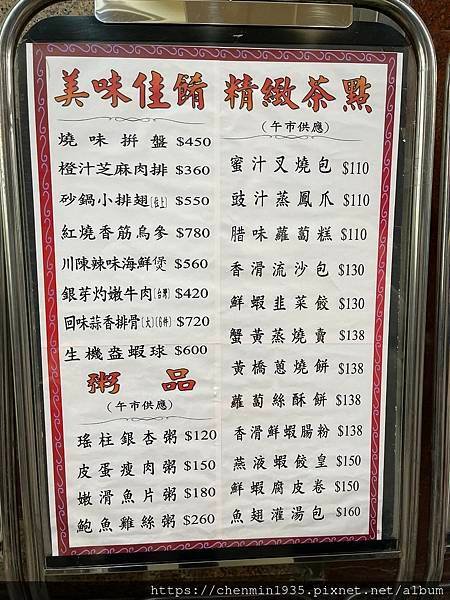 美味佳餚
燒味拼盤 $450
橙汁芝麻肉排 $360
砂鍋小排翅(位上) $550
紅燒香筋烏參 $780
川陳辣味海鮮煲 $560
銀芽灼嫩牛肉(台灣) $420
回味蒜香排骨(大)(6件) $720
生機盎蝦球 $600
粥品
(午市供應)
瑤柱銀杏粥 $120
皮蛋瘦肉粥 $150
嫩滑魚片粥 $180
鮑魚雞絲粥 $260
精緻茶點
(午市供應)
蜜汁叉燒包 $110
豉汁蒸鳳爪 $110
腊味蘿蔔糕 $110
香滑流沙包 $130
鮮蝦韭菜餃 $130
蟹黃蒸燒賣 $138
黃橋蔥燒餅 $138
蘿蔔絲酥餅 $138
香滑鮮蝦腸粉 $138
燕液蝦餃皇 $150
鮮蝦腐皮卷 $150
魚翅灌湯包 $160
https://chenmin1935.pixnet.net/album